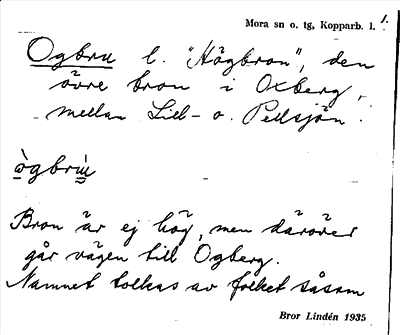 Mora sn o. tg, Kopparb. l. 1.
Ogbru l. "Högbron", den
övre bron i Oxberg,
mellan Lill- o. Pellsjön.
ògbrù
Bron är ej hög, men däröver
går vägen till Ogberg.
Namnet tolkas av folket såsom
Bror Lindén 1935